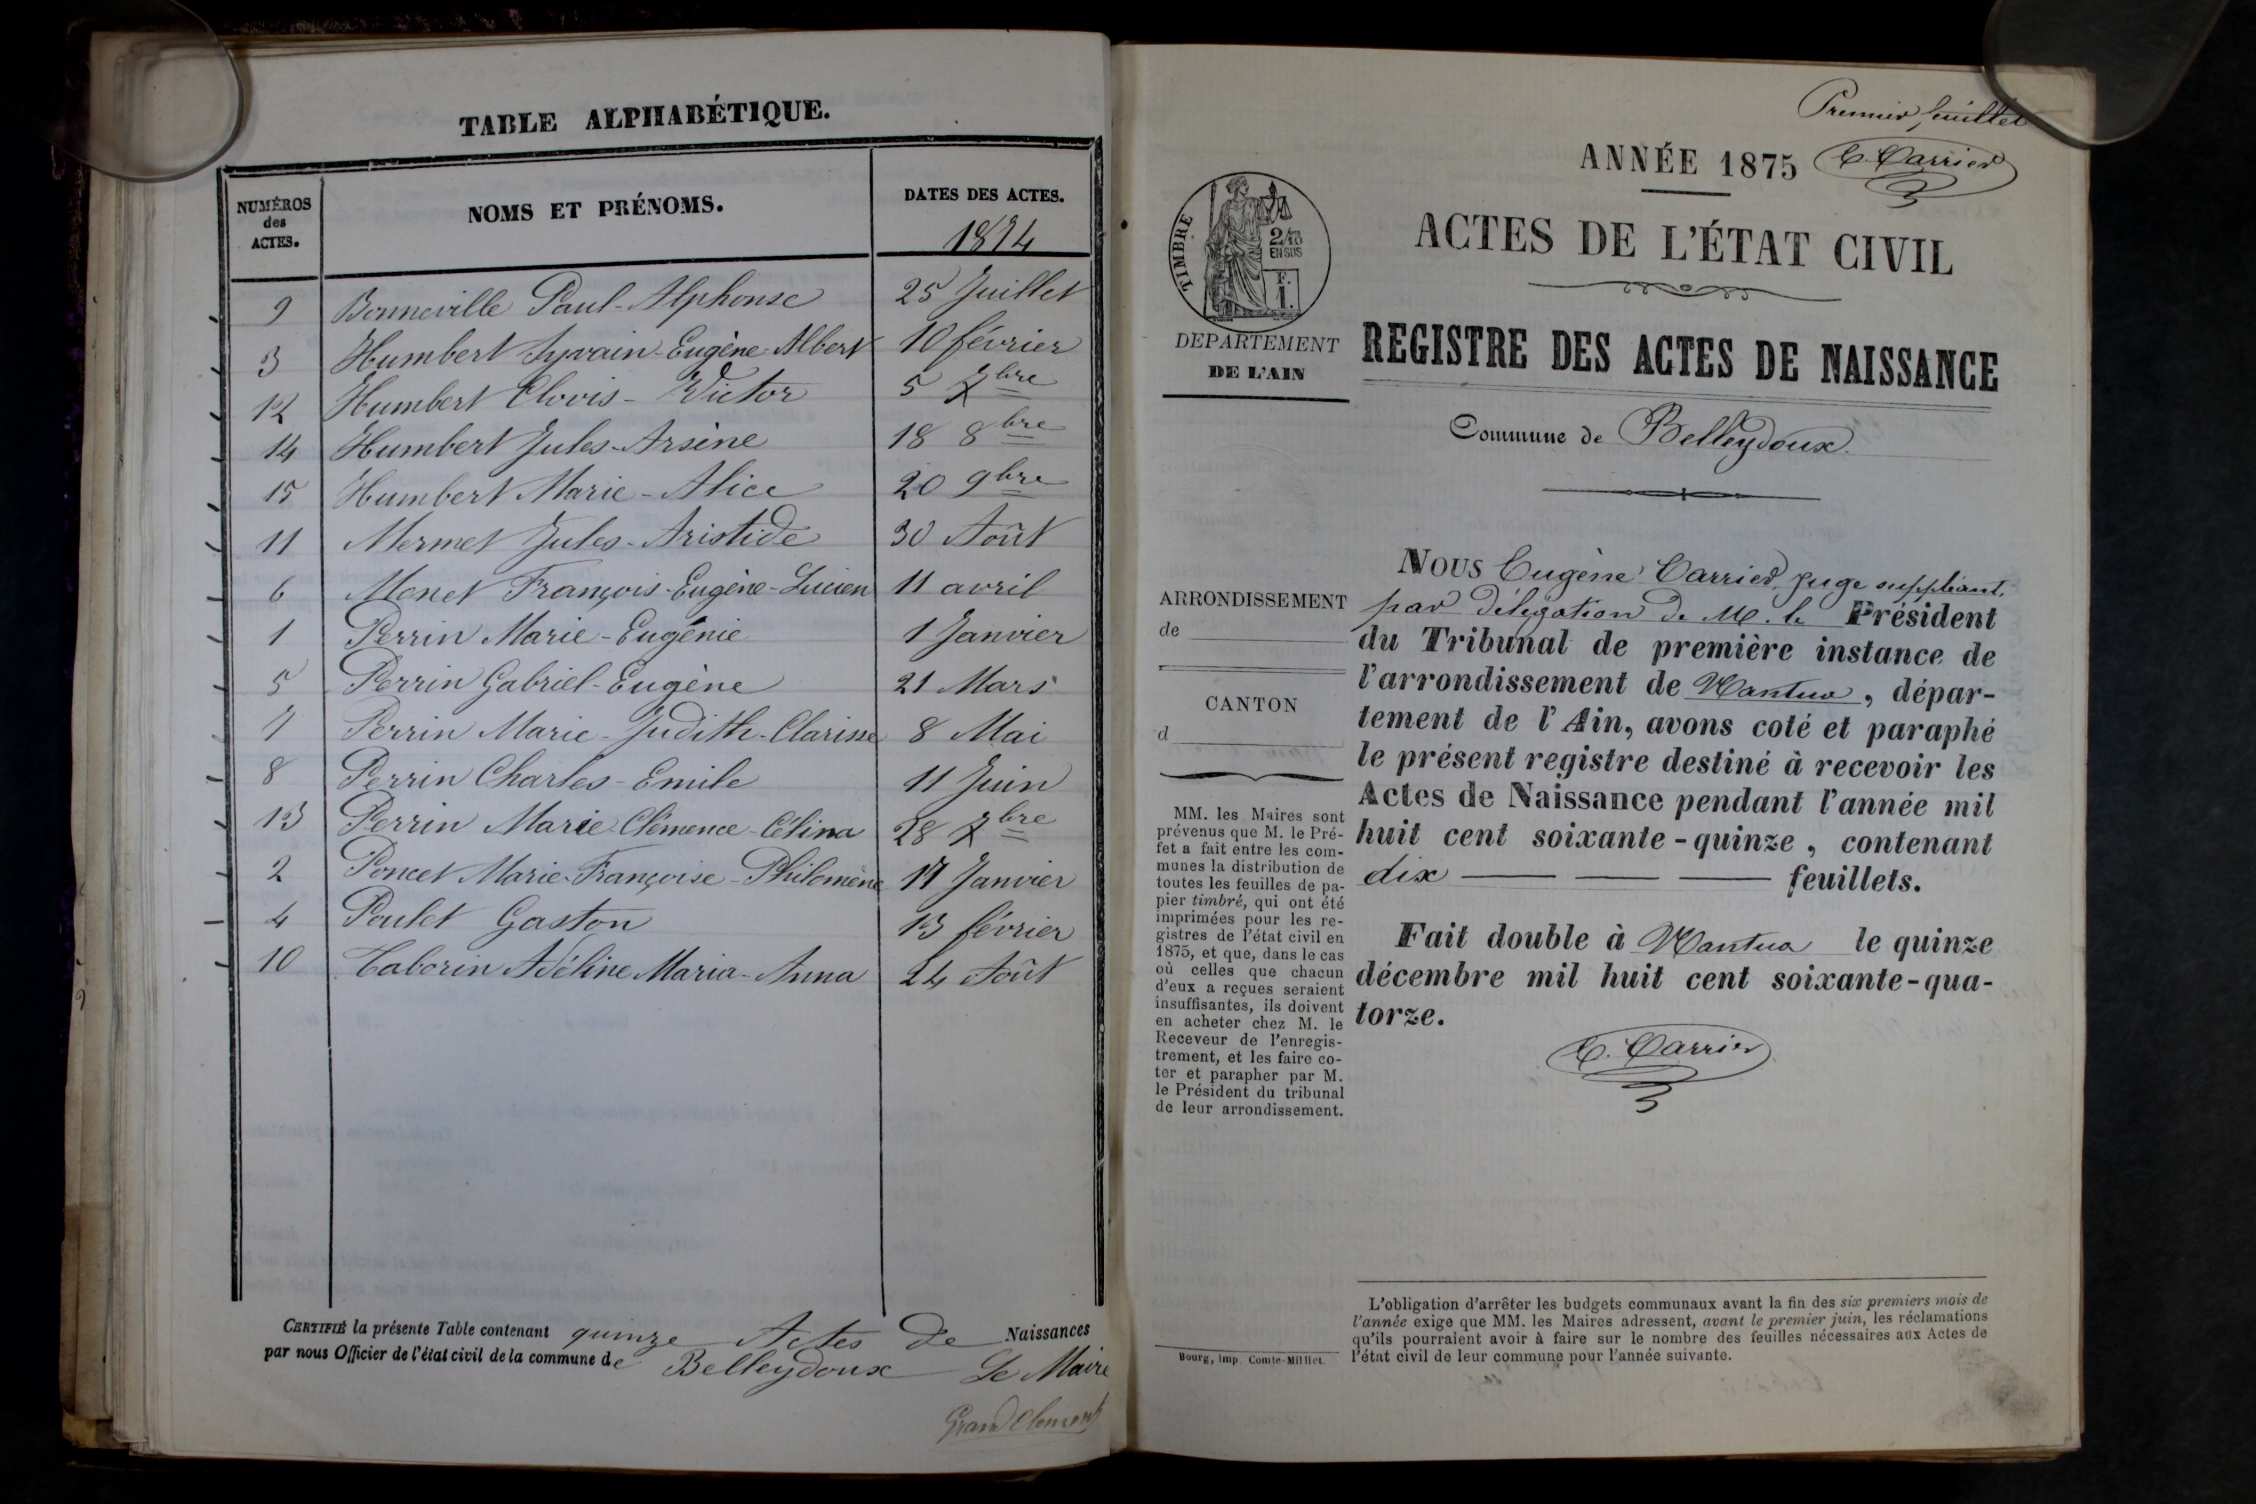 TABLE ALPHABÉTIQUE.
NUMÉROS des ACTES. NOMS ET PRÉNOMS. DATES DES ACTES. 1874
9 Bonneville Paul-Alphonse 25 Juillet
3 Humbert Sylvain-Eugène-Albert 10 février
12 Humbert Clovis-Victor 5 7bre
14 Humbert Jules-Arsène 18 8bre
15 Humbert Marie-Alice 20 9bre
11 Mermet Jules-Aristide 30 Août
6 Monet François-Eugène-Lucien 11 avril
1 Perrin Marie-Eugénie 1 Janvier
5 Perrin Gabriel-Eugène 21 Mars
7 Perrin Marie-Judith-Clarisse 8 Mai
8 Perrin Charles-Emile 11 Juin
13 Perrin Marie Clémence-Célina 28 7bre
2 Poncet Marie-Françoise-Philomène 17 Janvier
4 Poulet Gaston 13 février
10 Taborin Adéline Maria-Anna 24 Août
CERTIFIÉ la présente Table contenant quinze Actes de Naissances
par nous Officier de l'état civil de la commune de Belleydoux Le Maire
GrandClement
Premier feuillet
ANNÉE 1875 E. Carrier
ACTES DE L'ÉTAT CIVIL
TIMBRE
2/10
EN SUS
F.
1.
DEPARTEMENT
DE L'AIN
REGISTRE DES ACTES DE NAISSANCE
Commune de Belleydoux.
ARRONDISSEMENT
de
CANTON
d
MM. les Maires sont
prévenus que M. le Pré-
fet a fait entre les com-
munes la distribution de
toutes les feuilles de pa-
pier timbré, qui ont été
imprimées pour les re-
gistres de l'état civil en
1875, et que, dans le cas
où celles que chacun
d'eux a reçues seraient
insuffisantes, ils doivent
en acheter chez M. le
Receveur de l'enregis-
trement, et les faire co-
ter et parapher par M.
le Président du tribunal
de leur arrondissement.
Bourg, imp. Comte-Milliet.
NOUS Eugène Carrier, juge suppléant,
par délégation de M. le Président
du Tribunal de première instance de
l'arrondissement de Nantua, dépar-
tement de l'Ain, avons coté et paraphé
le présent registre destiné à recevoir les
Actes de Naissance pendant l'année mil
huit cent soixante-quinze, contenant
dix feuillets.
Fait double à Nantua le quinze
décembre mil huit cent soixante-qua-
torze.
E. Carrier
L'obligation d'arrêter les budgets communaux avant la fin des six premiers mois de
l'année exige que MM. les Maires adressent, avant le premier juin, les réclamations
qu'ils pourraient avoir à faire sur le nombre des feuilles nécessaires aux Actes de
l'état civil de leur commune pour l'année suivante.